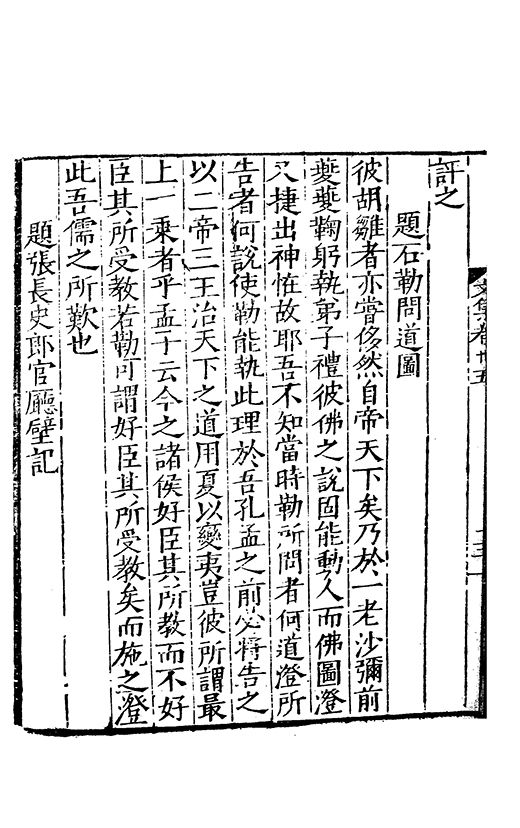 文集卷卄五
評之
題石勒問道圖
彼胡雛者亦嘗侈然自帝天下矣乃於一老沙彌前
夔夔鞠躬執弟子禮彼佛之說固能動人而佛圖澄
又捷出神恠故耶吾不知當時勒所問者何道澄所
告者何說使勒能執此理於吾孔孟之前必將告之
以二帝三王治天下之道用夏以變夷豈彼所謂最
上一乘者乎孟子云今之諸侯好臣其所教而不好
臣其所受教若勒可謂好臣其所受教矣而施之澄
此吾儒之所歎也
題張長史郎官廳壁記